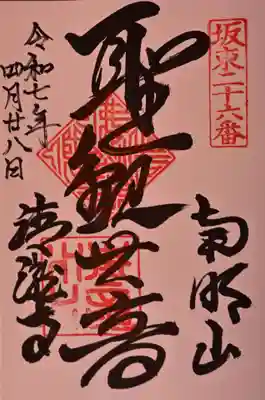 坂東二十六番
南明山
聖観世音
清滝寺
令和七年
四月廿八日